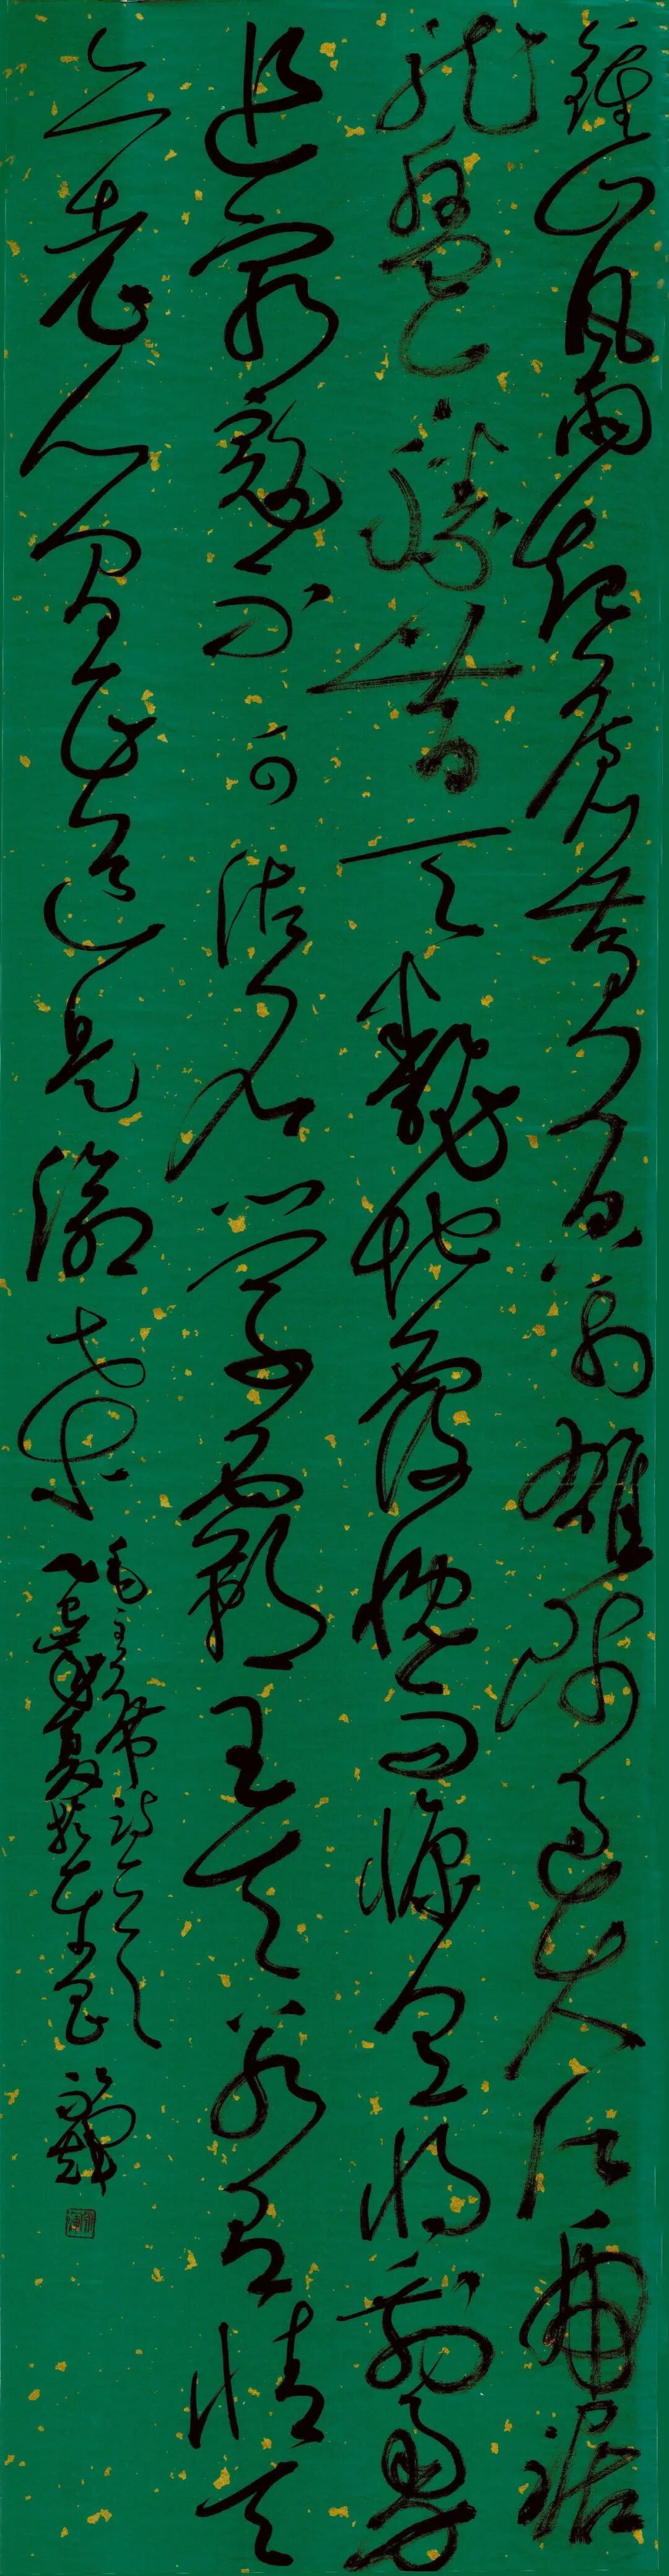 鍾山風雨起蒼黄百万雄師過大江虎踞
龍盤今勝昔天翻地覆慨而慷宜將剩勇
追窮寇不可沽名學霸王天若有情天
亦老人間正道是滄桑
毛主席詩
乙巳夏於